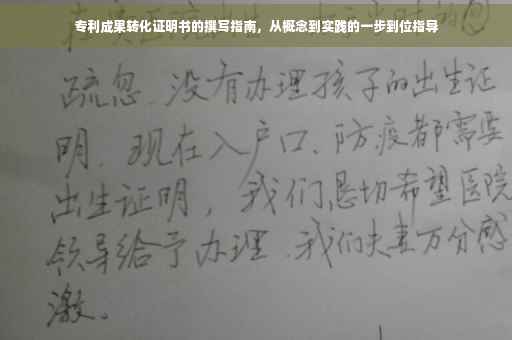 专利成果转化证明书的撰写指南，从概念到实践的一步到位指导
疏忽.没有办理孩子的出生证
明.现在入户口、防疫都需要
出生证明，我们恳切希望医院
领导给予办理.我们夫妻万分感
激。